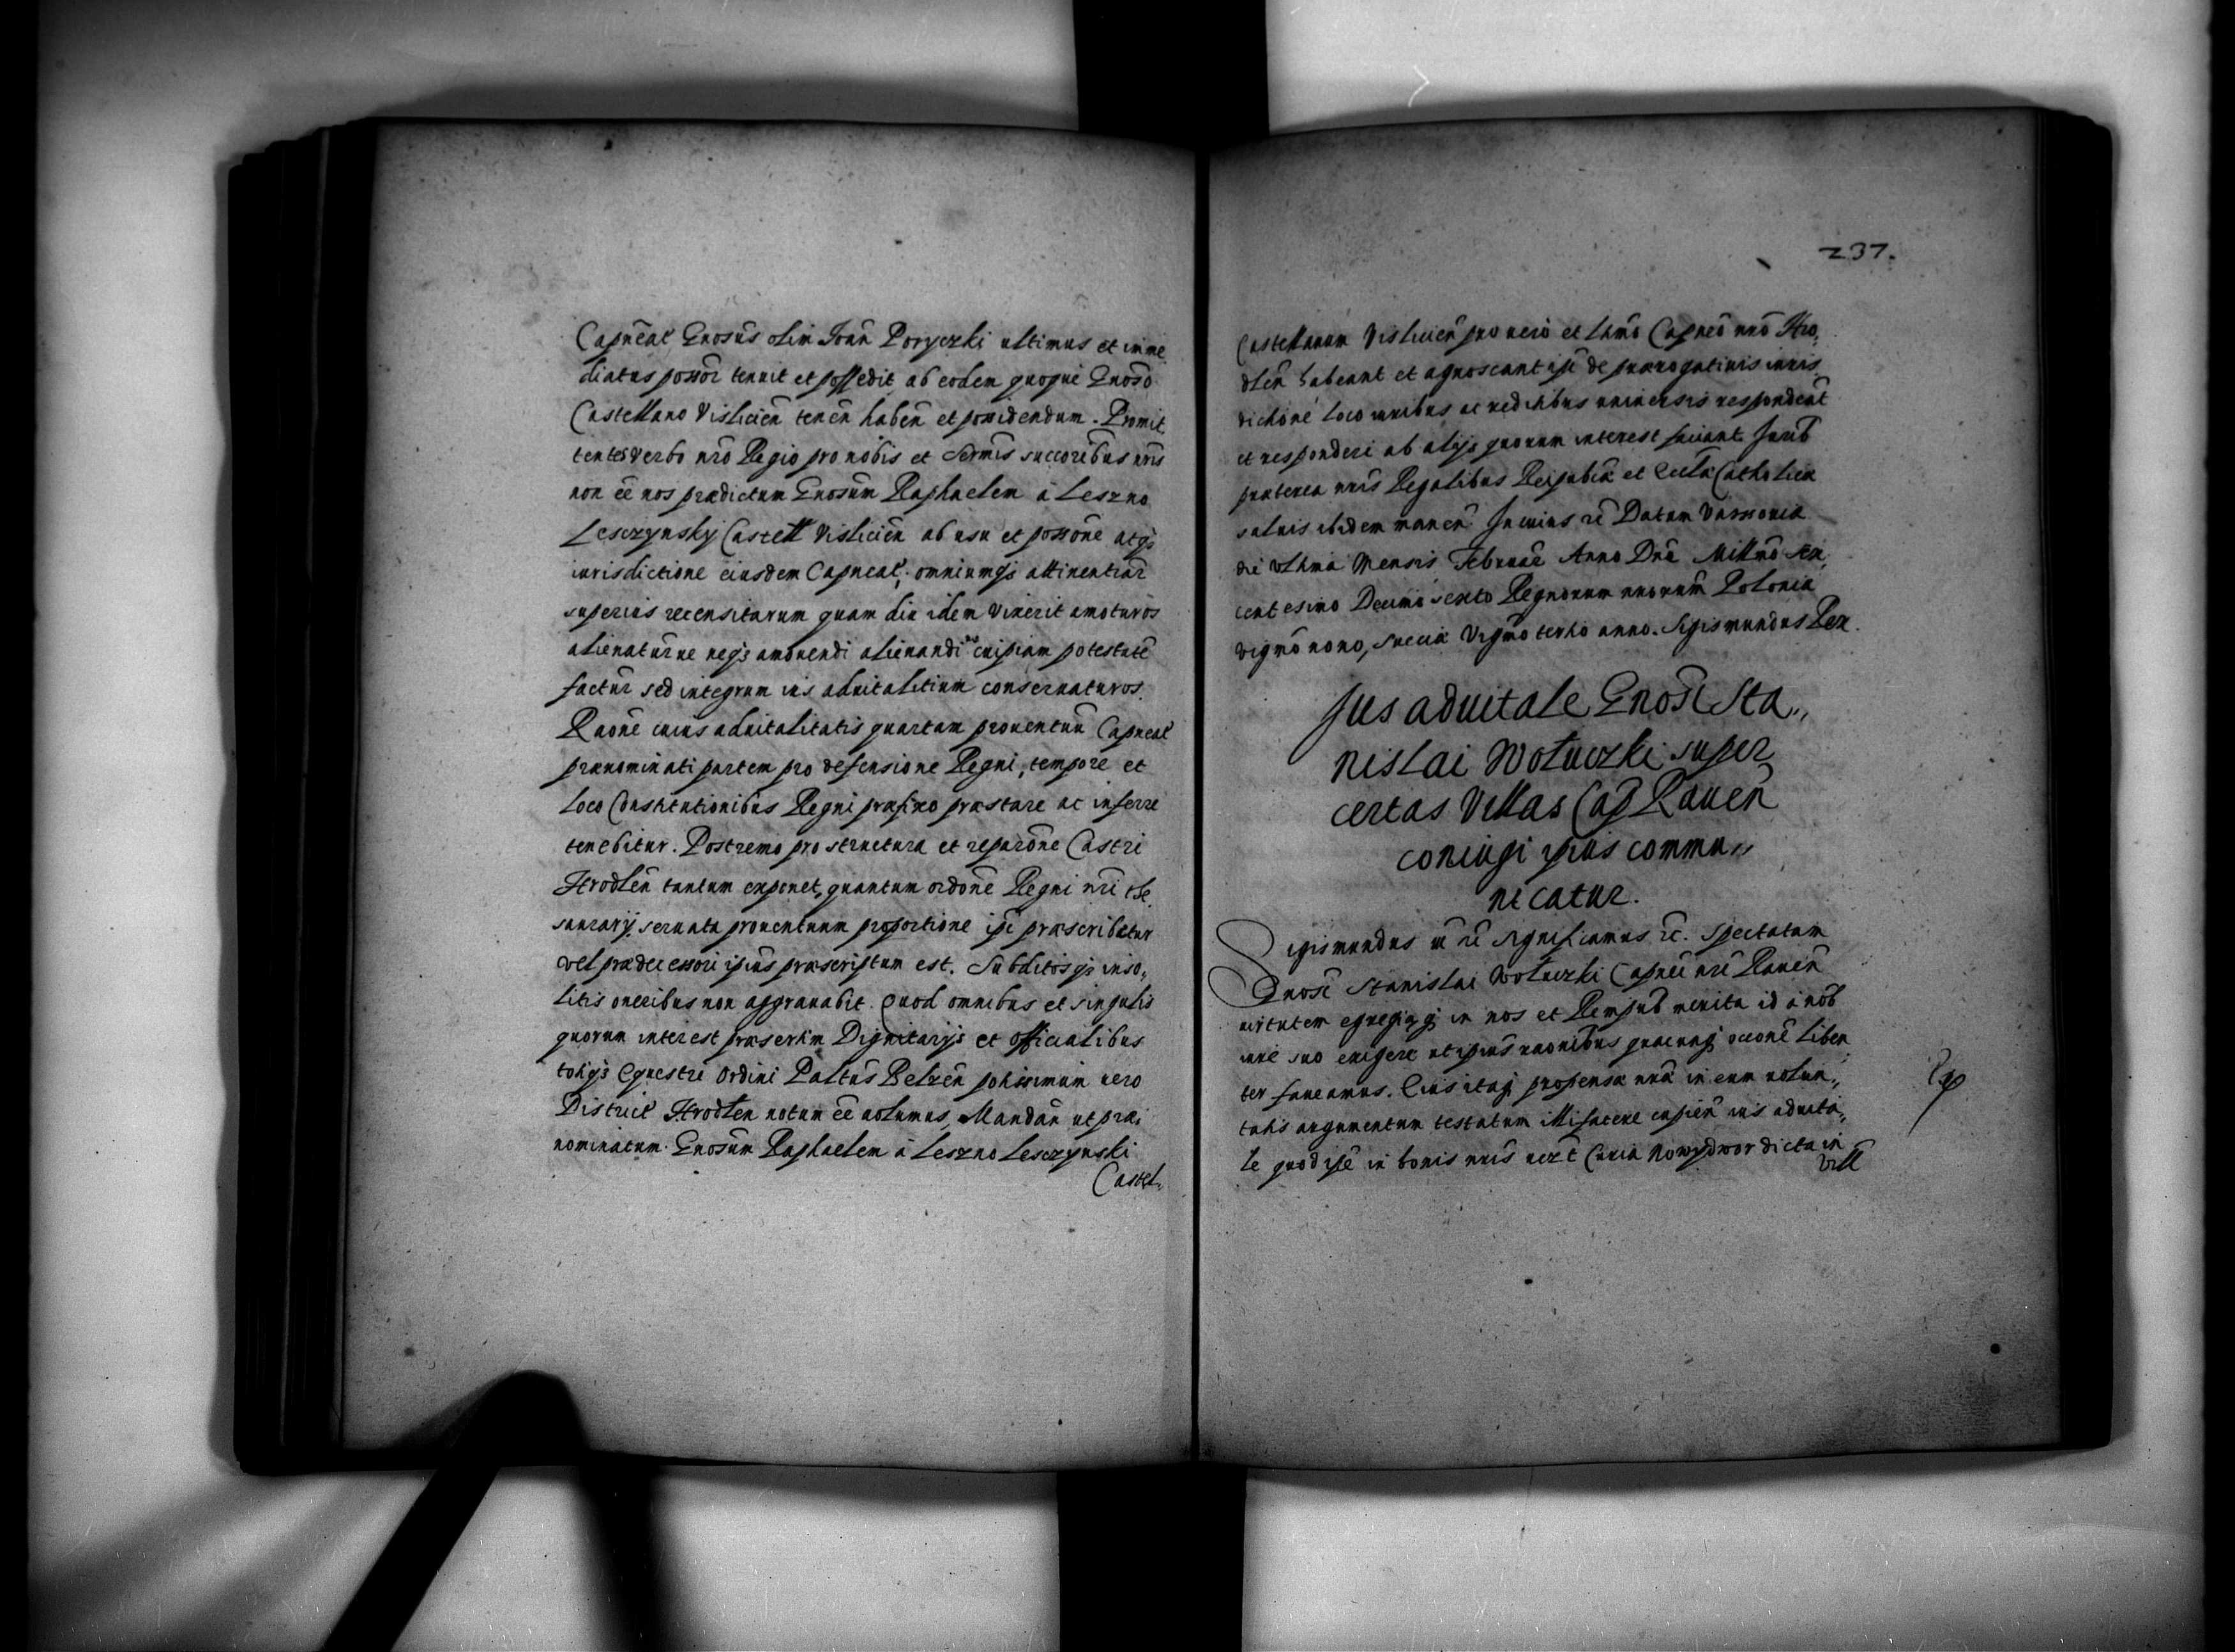 Capneat Gnosus olim Ioan Poryczki ultimus et imme
diatus possor tenuit et possedit ab eodem quoque Gnoso
Castellano Vislicien tenen haben et possidendum. Promit
tentes verbo nro Regio pro nobis et Sermis succoribus nris
non ee nos prædictum Gnosum Raphaelem à Leszno
Lesczynskj Castell Vislicien ab usu et possone atqs
iurisdictione eiusdem Capneat, omniumqs attinentiar
superius recensitarum quam diu idem vixerit amoturos
alienaturue neqs amouendi alienandi cuipiam potestate
factur sed integrum ius aduitalitium conseruaturos.
Raone cuius aduitalitatis quartam prouentuu Capneat
prænominati partem pro defensione Regni, tempore et
loco Constitutionibus Regni præfixo præstare ac inferre
tenebitur. Postremo pro structura et reparone Castri
Hrodlen tantum exponet, quantum ordone Regni nri the
saurarij seruata prouentuum proportione ipi præscribetur
vel prædecessori ipius præscriptum est. Subditosqs inso,
litis oneribus non aggrauabit. Quod omnibus et singulis
quorum interest præsertim Dignitarijs et officialibus
totiqs Equestri Ordini Paltus Belzen potissimum uero
District Hrodlen notum ee uolumus, Mandan ut præ
nominatum Gnosum Raphaelem à Leszno Lesczynski
Castel,
237.
Castellanum Vislicien pro uero et ltimo Capneo nro Hro,
dlen habeant et agnoscant ipi de prærogatiuis iuris
dictione loco iuribus ac reditibus uniuersis respondeat
et responderi ab alijs quorum interest faciant Jurib
præterea nris Regalibus Reipubcæ et Eccla Catholicæ
saluis ibidem manen. In cuius re Datum Varsouiæ
die ultima Mensis Februar Anno Dne Millmo sex,
centesimo Decimo sexto Regnorum nrorum Poloniæ
vigmo nono, Sueciæ Vigmo tertio anno. Sigismundus Rex.
Jus aduitale Gnosi Sta,,
nislai Wołuczki super
certas Villas Cap Rauen
coniugi ipius commu,,
nicatur.
Sigismundus &c significamus &c. Spectatam
Gnosi Stanislai Wołuczki Capnei nri Rauen
uirtutem egregiaqs in nos et Rempub merita id à nob
iure suo exigere ut ipius raonibus quacunqs occone liben
ter faueamus. Eius itaqs propensæ nræ in eum uolun,,
tatis argumentum testatum illi facere cupien ius aduita,,
le quod ipe in bonis nris Curia Nowydwor dicta in
Vill